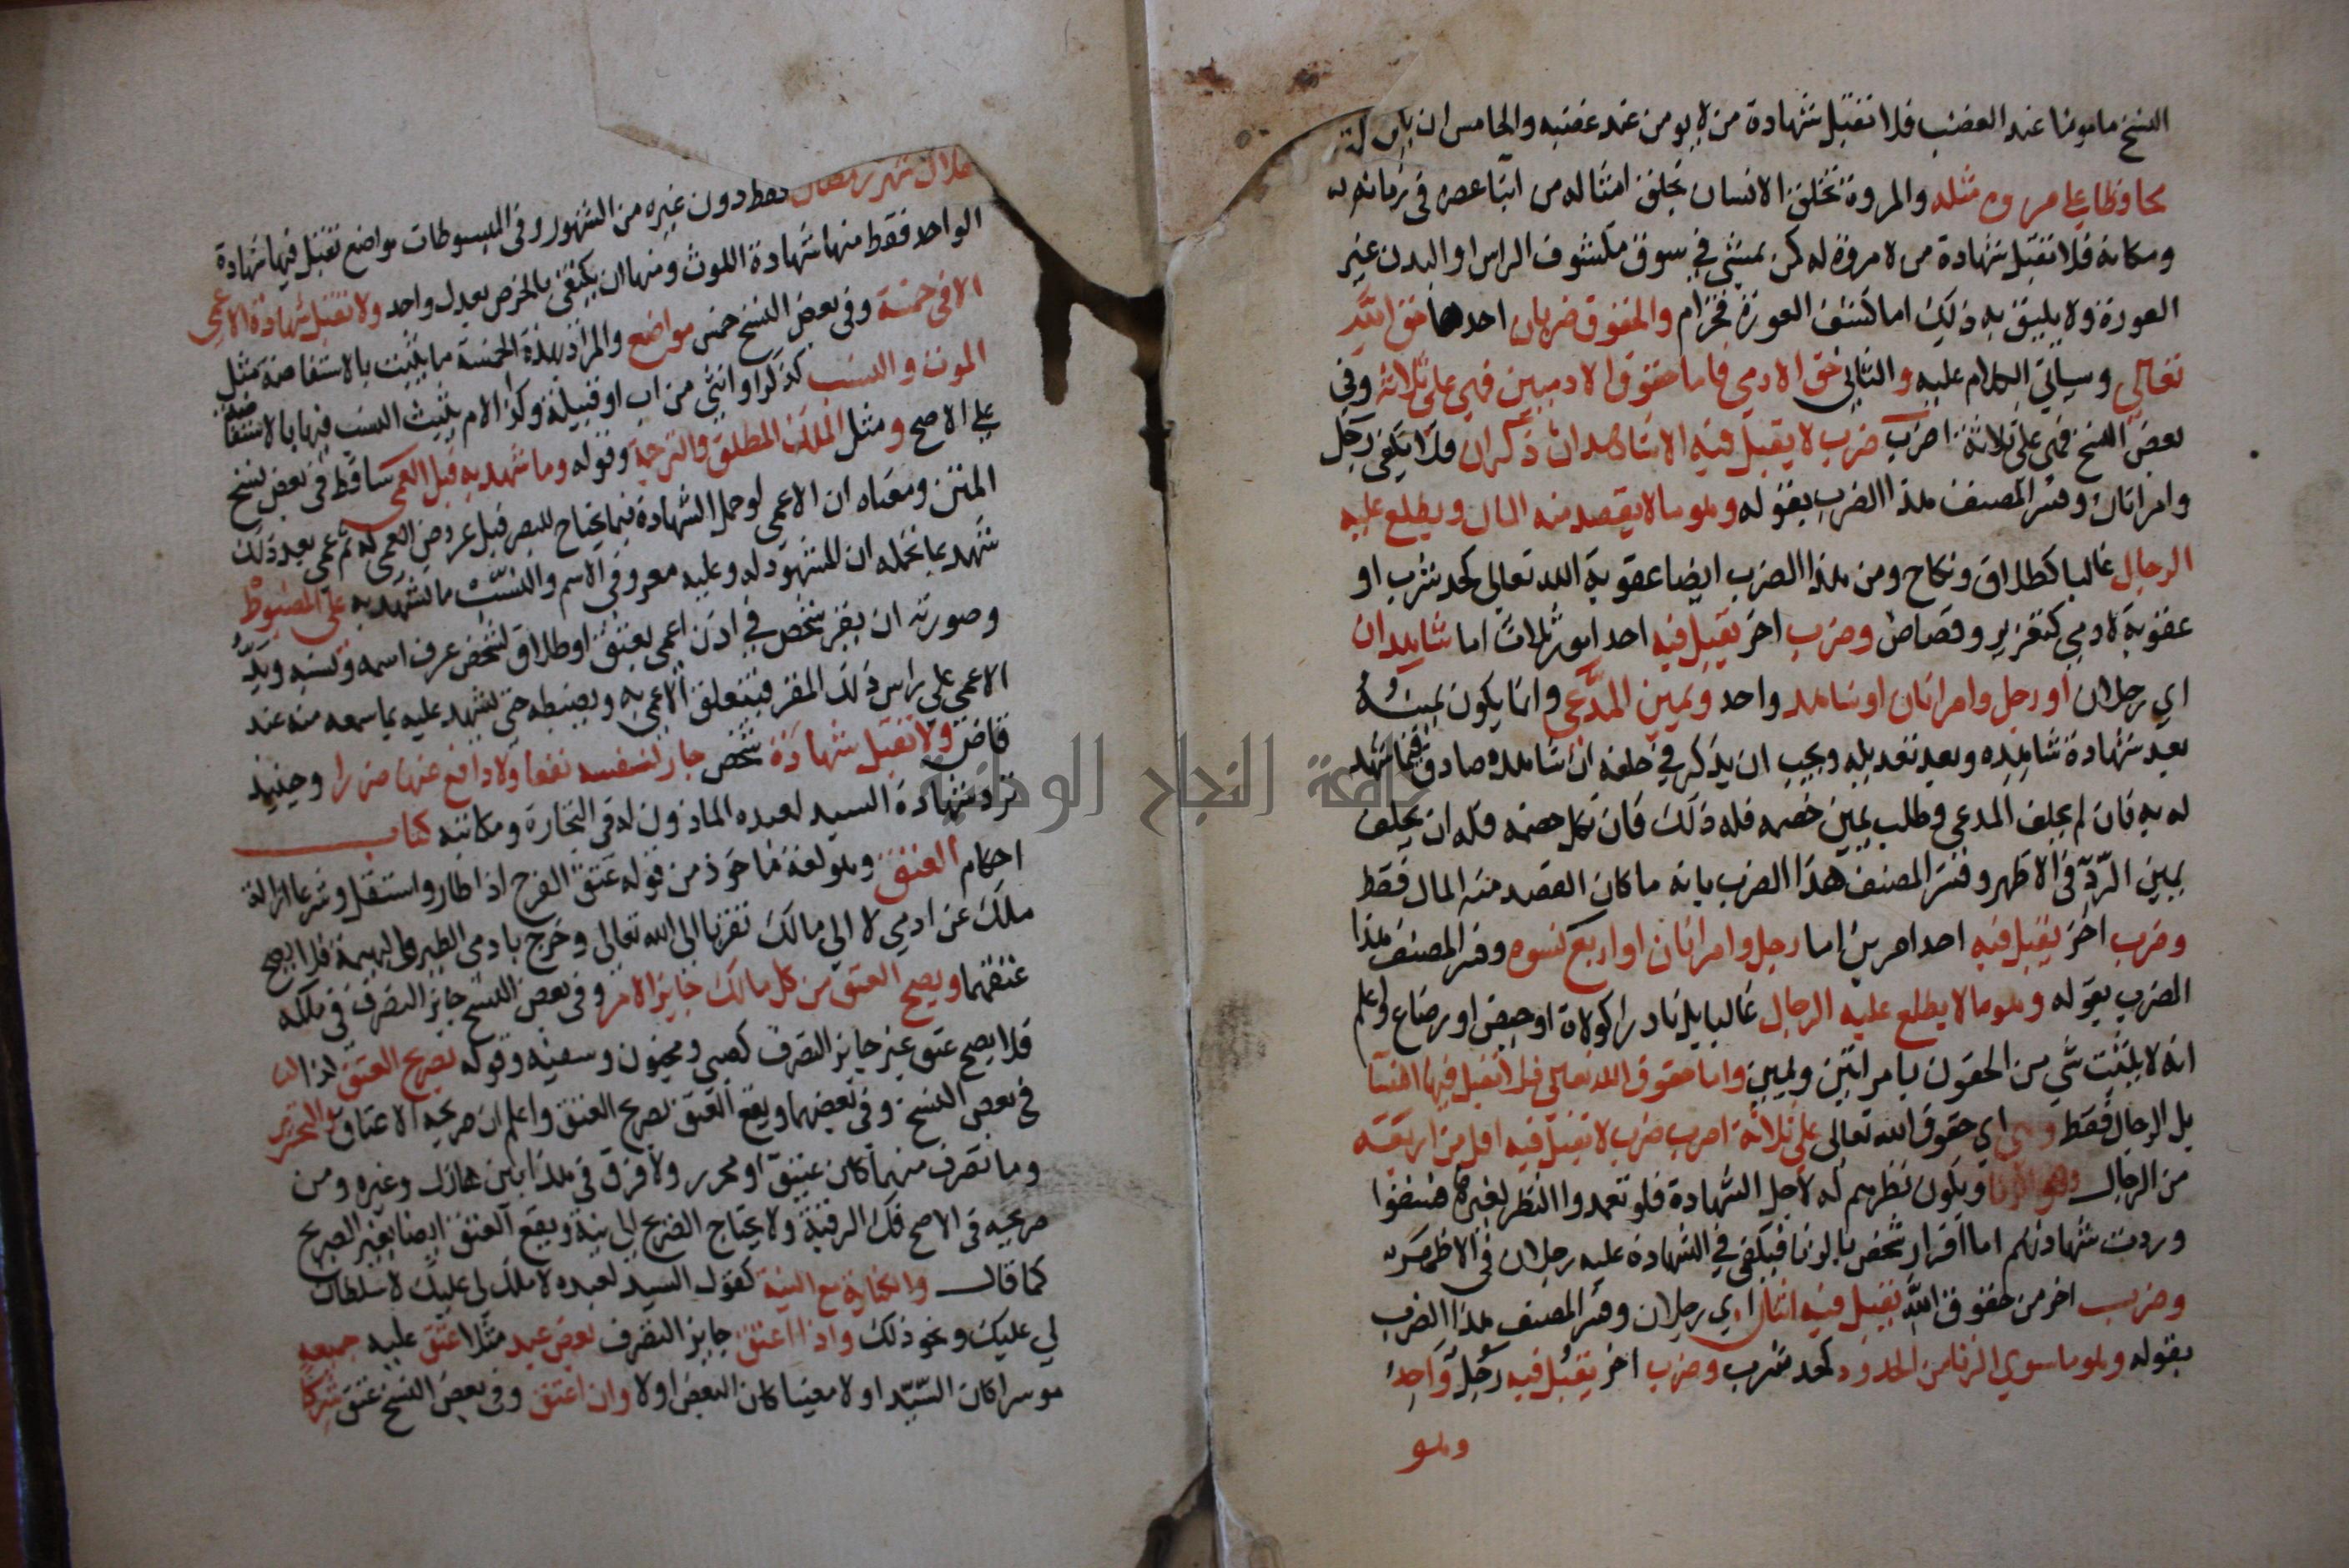 النسخ مامونا عند الغضب فلا تقبل شهادة من لا يومن عند غضبه والخامس ان يكون
محافظا على مروة مثله والمروة تخلق الانسان بخلق امثاله من ابنا عصره في زمانه
ومكانه فلا تقبل شهادة من لا مروة له كمن يمشي في سوق مكشوف الراس او البدن غير
العورة ولا يليق به ذلك اما كشف العورة فحرام والحقوق ضربان احدهما حق الله
تعالى وسياتي الكلام عليه والثاني حق الادمي فاما حقوق الادميين فهي على ثلاثة وفي
بعض النسخ فهي على ثلاثة اضرب ضرب لا يقبل فيه الا شاهدان ذكران فلا يكفي رجل
وامراتان وفسر المصنف هذا الضرب بقوله وهو ما لا يقصد منه المال ويطلع عليه
الرجال غالبا كطلاق ونكاح ومن هذا الضرب ايضا عقوبة الله تعالى كحد شرب او
عقوبة لادمي كتعزير وقصاص وضرب اخر يقبل فيه احد امور ثلاث اما شاهدان
اي رجلان او رجل وامراتان او شاهد واحد ويمين المدعي وانما يكون يمينه
بعد شهادة شاهده وبعد تعديله ويجب ان يذكر في حلفه ان شاهده صادق فيما شهد
له به فان لم يحلف المدعي وطلب يمين خصمه فله ذلك فان نكل خصمه فله ان يحلف
يمين الرد في الاظهر وفسر المصنف هذا الضرب بانه ما كان القصد منه المال فقط
وضرب اخر يقبل فيه احد امرين اما رجل وامراتان او اربع نسوه وفسر المصنف هذا
الضرب بقوله وهو ما لا يطلع عليه الرجال غالبا بل نادرا كولادة او حيض او رضاع واعلم
انه لا يثبت شي من الحقوق بامراتين ويمين واما حقوق الله تعالى فلا تقبل فيها النسا
بل الرجال فقط وهي اي حقوق الله تعالى على ثلاثة اضرب ضرب لا يقبل فيه اقل من اربعة
من الرجال وهو الزنا ويكون نظرهم له لاجل الشهادة فلو تعمدوا النظر لغيرها فسقوا
وردت شهادتهم اما اقرار شخص بالزنا فيكفي في الشهادة عليه رجلان في الاظهر
وضرب اخر من حقوق الله يقبل فيه اثنان اي رجلان وفسر المصنف هذا الضرب
بقوله وهو ما سوي الزنا من الحدود كحد شرب وضرب اخر يقبل فيه رجل واحد
وهو
هلال شهر رمضان فقط دون غيره من الشهور وفي المبسوطات مواضع تقبل فيها شهادة
الواحد فقط منها شهادة اللوث ومنها ان يكتفى بالخرص بعدل واحد ولا تقبل شهادة الاعمى
الا في خمسة وفي بعض النسخ خمس مواضع والمراد بهذه الخمسة ما يثبت بالاستفاضة مثل
الموت والنسب كذكر او انثى من اب او قبيلة وكذا الام يثبت النسب فيها بالاستفاضة
على الاصح ومثل الملك المطلق والترجمة وقوله وما شهد به قبل العمى ساقط في بعض نسخ
المتن ومعناه ان الاعمى لو حمل الشهادة فيما يحتاج للبصر قبل عروض العمى له ثم عمى بعد ذلك
شهد بما تحمله ان المشهود له وعليه معروفي الاسم والنسب ما شهد به على المضبوط
وصورته ان يقر شخص في اذن اعمى بعتق او طلاق لشخص عرف اسمه ونسبه ويد
الاعمى على راس ذلك المقر فيتعلق الاعمى به ويضبطه حتى يشهد عليه بما سمعه منه عند
قاض ولا تقبل شهادة شخص جار لنفسه نفعا ولا دافع عنها ضررا وحينيذ
ترد شهادة السيد لعبده الماذون له في التجارة ومكاتبه كتاب
احكام العتق وهو لغة ماخوذ من قوله عتق الفرخ اذا طار واستقل وشرعا ازالة
ملك عن ادمي لا الي مالك تقربا الى الله تعالى وخرج بادمي الطير والبهيمة فلا يصح
عتقهما ويصح العتق من كل مالك جايز الامر وفي بعض النسخ جايز التصرف في ملكه
فلا يصح عتق غير جايز التصرف كصبي ومجنون وسفيه وقوله بصريح العتق كذا
في بعض النسخ وفي بعضها ويقع العتق بصريح العتق واعلم ان صريحه الاعتاق والتحرير
وما تصرف منهما كانت عتيق او محرر ولا فرق في هذا بين هازل وغيره ومن
صريحه في الاصح فك الرقبة ولا يحتاج الصريح الى نية ويقع العتق ايضا بغير الصريح
كما قال والكناية مع النية كقول السيد لعبده لا ملك لي عليك لا سلطان
لي عليك ونحو ذلك واذا اعتق جايز التصرف بعض عبد مثلا عتق عليه جميعه
موسرا كان السيد او لا معينا كان البعض او لا وان اعتق وفي بعض النسخ عتق شركا